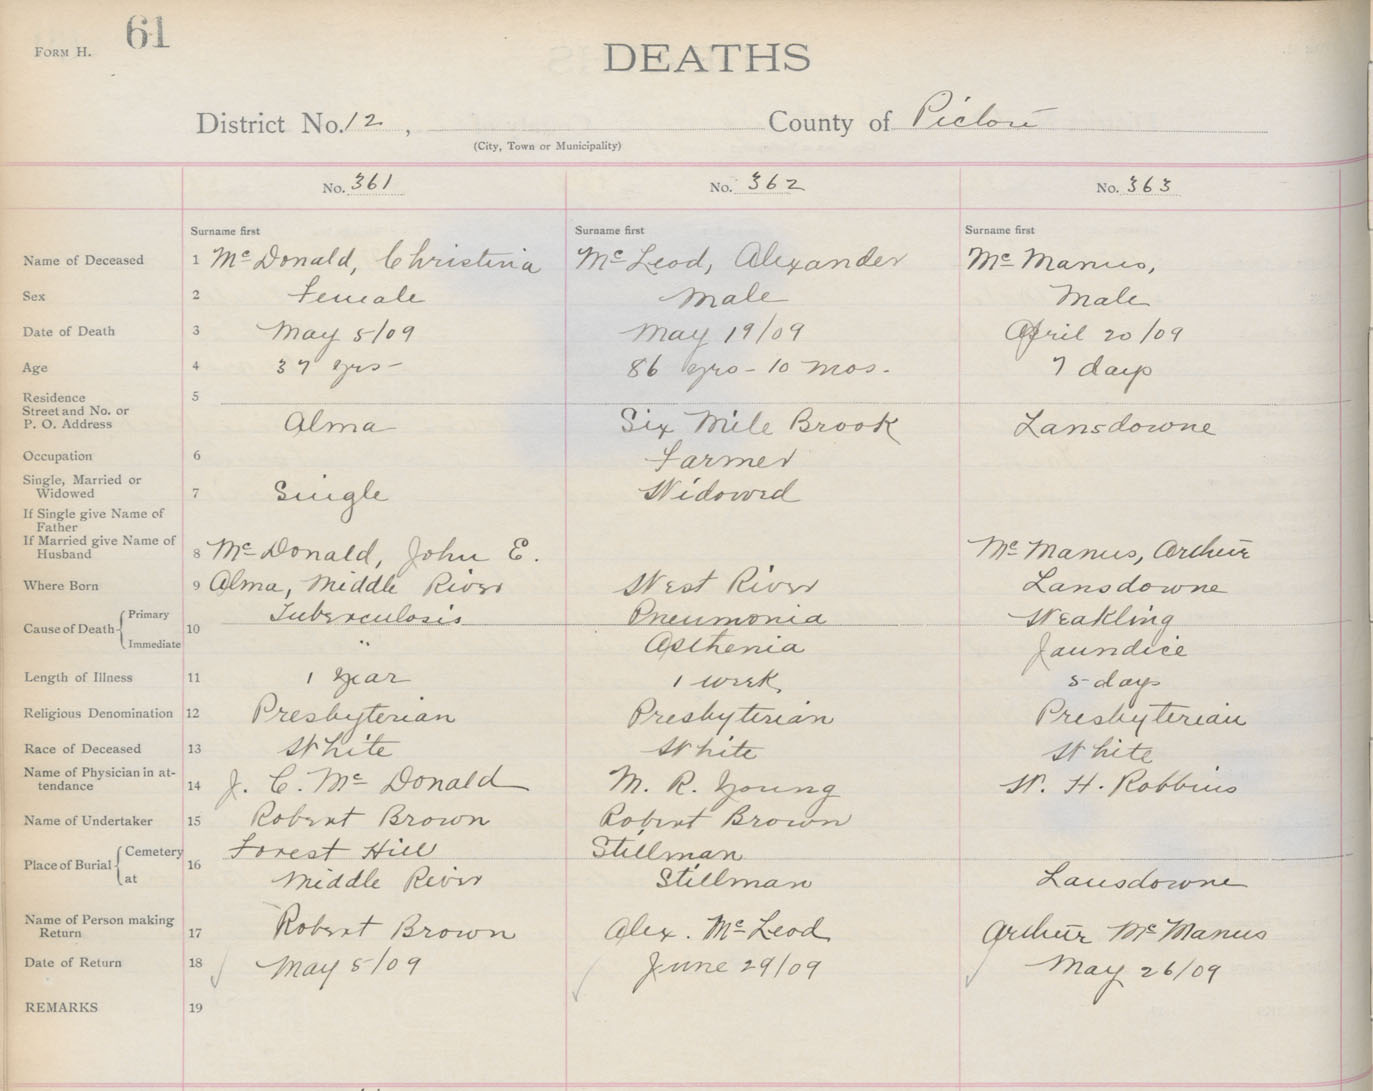 61
FORM H.
DEATHS
District No. 12, County of Pictou
(City, Town or Municipality)
No. 361 No. 362 No. 363
Surname first Surname first Surname first
Name of Deceased 1 McDonald, Christina McLeod, Alexander McManus,
Sex 2 Female Male Male
Date of Death 3 May 5/09 May 19/09 April 20/09
Age 4 37 yrs- 86 yrs-10 mos. 7 days
Residence 5
Street and No. or
P. O. Address Alma Six Mile Brook Lansdowne
Occupation 6 Farmer
Single, Married or
Widowed 7 Single Widowed
If Single give Name of
Father
If Married give Name of
Husband 8 McDonald, John E. McManus, Arthur
Where Born 9 Alma, Middle River West River Lansdowne
Cause of Death 10 Primary Tuberculosis Pneumonia Weakling
Immediate " Asthenia Jaundice
Length of Illness 11 1 year 1 week 5 days
Religious Denomination 12 Presbyterian Presbyterian Presbyterian
Race of Deceased 13 White White White
Name of Physician in at-
tendance 14 J. C. McDonald M. R. Young W. H. Robbins
Name of Undertaker 15 Robert Brown Robert Brown
Place of Burial 16 Cemetery Forest Hill Stillman
at Middle River Stillman Lansdowne
Name of Person making
Return 17 Robert Brown Alex. McLeod Arthur McManus
Date of Return 18 May 5/09 June 29/09 May 26/09
REMARKS 19